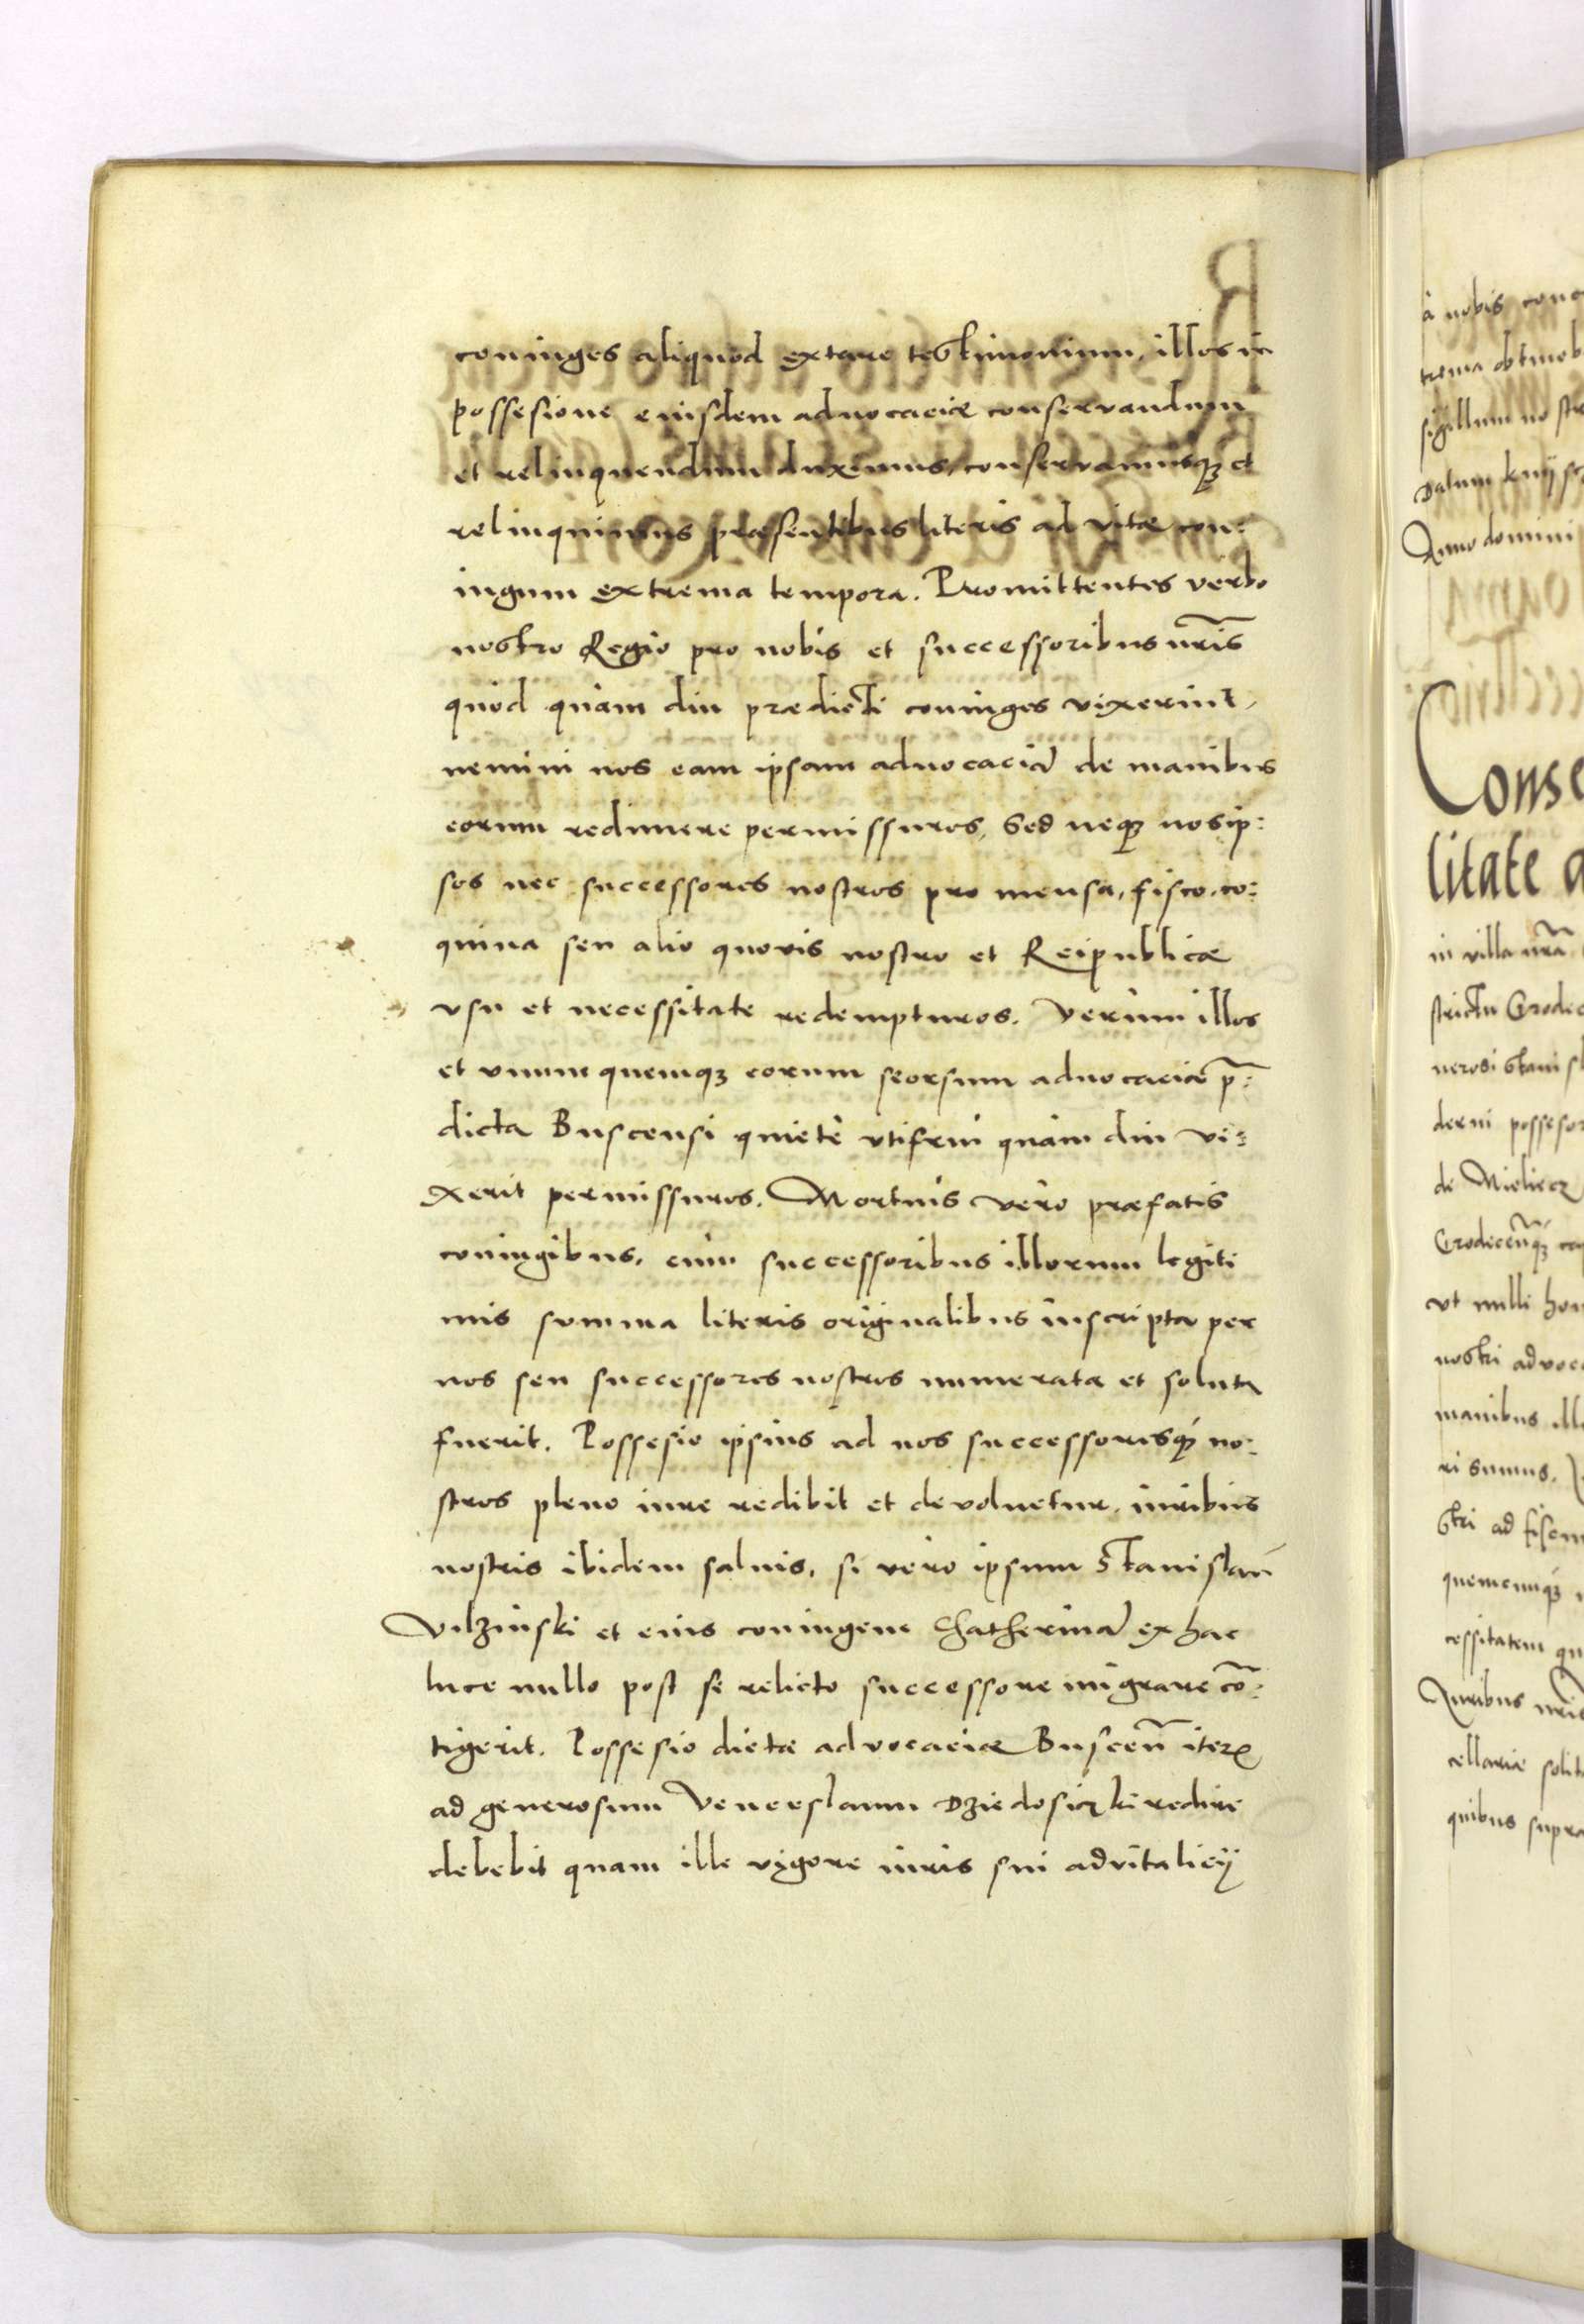 coniuges aliquod extare testimonium, illos in
possesione eiusdem aduocaciæ conseruandum
et relinquendum duximus, conseruamusq3 et
relinquimus præsentibus literis ad vitæ con:
iugum extrema tempora. Promittentes verbo
nostro Regio pro nobis et successoribus nris
quod quàm diu prædicti coniuges vixerint,
nemini nos eam ipsam aduocaciã de manibus
eorum redimere permissuros, sed neq3 nos ip:
sos nec successores nostros pro mensa, fisco, co:
quina seu alio quouis nostro et Reipublicæ
vsu et necessitate redempturos. Verùm illos
et vnumquemq3 eorum seorsum aduocaciæ p:
dicta Buscensi quietè vtifrui quàm diu vi:
xerit permissuros. Mortuis verò præfatis
coniugibus, cùm successoribus illorum legiti
mis summa literis originalibus inscripta per
nos seu successores nostros numerata et soluta
fuerit. Possesio ipsius ad nos successoresq3 no:
stros pleno iure redibit et deuoluetur, iuribus
nostris ibidem saluis, si vero ipsum Stanislaũ
Vilzinski et eius coniugem Chatherinã ex hac
luce nullo post se relicto successore migrare cõ:
tigerit. Possesio dictæ advocaciæ Buscen̄ iter
ad generosum Venceslaum Dziedosiczki redire
debebit quam ille vigore iuris sui aduitalicÿ
à nobis conc
trema
sigillum nostr
Datum
Anno domini
Conse
litate a
in villa nrã
strictu Grodec
nerosi Stanisl
derni possesor
de Mieliecz
Grodecen̄q3
vt nulli hom
nostri advoca
manibus ill
ri sumus.
stri ad fiscum
quemcunq3
cessitatem qu
Iuribus nris
cellariæ solit
quibus supra